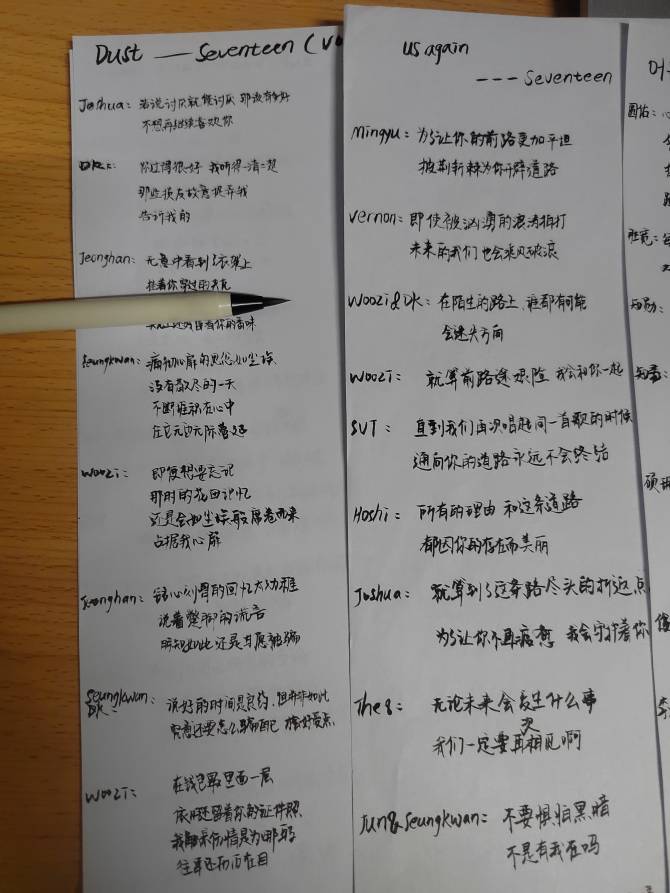 Dust — Seventeen (Vo
Joshua: 若说讨厌就能讨厌 那该有多好
不想再继续喜欢你
DK: 你过得很好 我听得一清二楚
那些损友故意捉弄我
告诉我的
Jeonghan: 无意中看到了衣架上
挂着你穿过的
你的香味
Seungkwan: 痛彻心扉的思念如尘埃
没有散尽的一天
不断堆积在心中
在它无边无际蔓延
Woozi: 即使想要忘记
那时的 回记忆
还是会如尘埃般席卷而来
占据我心扉
Jeonghan: 铭心刻骨的回忆太幼稚
说着蹩脚的谎言
明知如此 还是甘愿被骗
Seungkwan DK: 说好的时间是良药, 但并非如此
究竟还要怎么骗自己 才好受点
Woozi: 在钱包最里面一层
依旧还留着你的证件照
我 表情是为哪般
往事还历历在目
us again
--- Seventeen
Mingyu: 为了让你的前路更加平坦
披荆斩棘为你开辟道路
Vernon: 即使被汹涌的浪涛拍打
未来的我们也会乘风破浪
Woozi&DK: 在陌生的路上 谁都有可能
会迷失方向
Woozi: 就算前路途艰险 我会和你一起
SVT: 直到我们再次唱起同一首歌的时候
通向你的道路永远不会终结
Hoshi: 所有的理由 和这条道路
都因你的存在而美丽
Joshua: 就算到了这条路尽头的折返点
为了让你不再疲惫 我会守护着你
The8: 无论未来会发生什么事
我们一定要再次相见啊
Jun&Seungkwan: 不要惧怕黑暗
不是有我在吗
圆佑:
胜宽:
知勋: